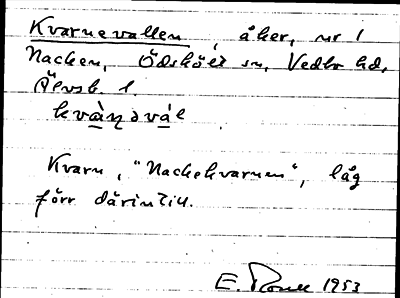 Kvarnevallen, åker, nr 1
Nacken, Ödskölt sn, Vedbo hd,
Älvsb. l.
kvànəvál
Kvarn, "Nackekvarnen", låg
förr därintill.
E. 1953